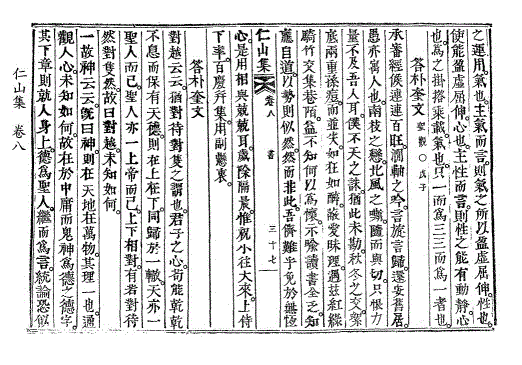 之運用氣也主氣而言則氣之所以盈虛屈伸性也
使能盈虛屈伸心也主性而言則性之能有動靜心
也爲之掛搭乘載氣也只一而爲三三而爲一者也
答朴奎文
承審經候連連百旺澗軸之吟言旋言歸還安舊居
愚亦寓人也南枝之戀北風之
量不及吾人耳僕不天之誅猶此未勘秋冬之交
騎竹交集巷陌盃不知何以爲懷不唫讀書全不知
應自道以勢則似然然而非此吾儕難乎免於無恆
仁山集
卷八 書
三十七
心是用相與兢兢耳歲除隔景惟祝小往大來上侍
下率百慶幷集用副懸衷
答朴奎文
對越云云猶對待對隻之謂也君子之心苟能乾乾
不息而保有天德則在上在下同歸於一轍天亦一
聖人而已聖人亦一上帝而已上下相對有者對待
然對隻然故曰對越未知如何
一故神云云旣曰神則在天地在萬物其理一也通
觀人心未知如何故在於中庸而鬼神爲德之德字
其下章則就人身上德爲聖人繼而爲言統論恐似
仁山集 卷八